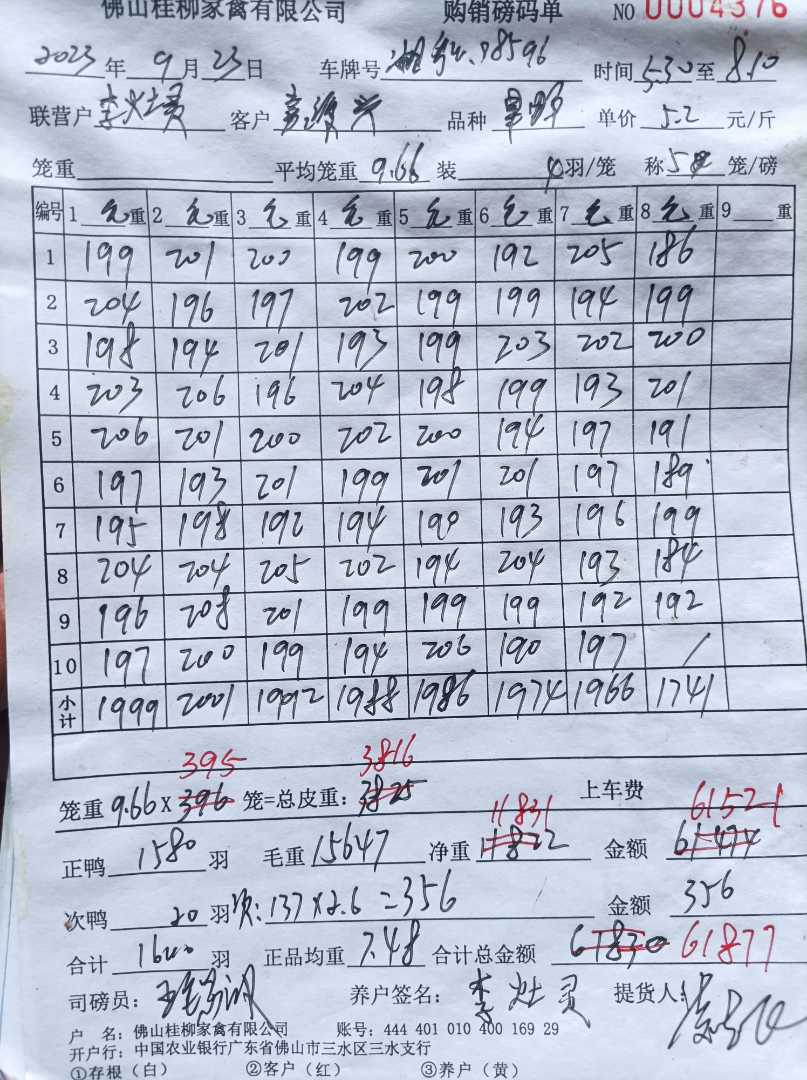 佛山桂柳家禽有限公司 购销磅码单 NO 0004376
2023年9月23日 车牌号 湘 98596 时间 5.30 至 8.10
联营户 李灶灵 客户 品种 单价 5.2 元/斤
笼重 平均笼重 9.66 装 4 羽/笼 称 5 笼/磅
编号 1 毛重 2 毛重 3 毛重 4 毛重 5 毛重 6 毛重 7 毛重 8 毛重 9 重
1 199 201 200 199 200 192 205 186
2 204 196 197 202 199 199 194 199
3 198 194 201 193 199 203 202 200
4 203 206 196 204 198 199 193 201
5 206 201 200 202 200 194 197 191
6 197 193 201 199 201 201 197 189
7 195 198 192 194 190 193 196 199
8 204 204 205 202 194 204 193 184
9 196 208 201 199 199 199 192 192
10 197 200 199 194 206 190 197 /
小计 1999 2001 1992 1988 1986 1974 1966 1741
395 3816
笼重 9.66 × 396 笼=总皮重: 3825 上车费
11831 61521
正鸭 1580 羽 毛重 15647 净重 11822 金额 61474
次鸭 20 羽 137×2.6=356 金额 356
合计 1600 羽 正品均重 7.48 合计总金额 61830 61877
司磅员: 养户签名: 李灶灵 提货人:
户 名: 佛山桂柳家禽有限公司 账号: 444 401 010 400 169 29
开户行: 中国农业银行广东省佛山市三水区三水支行
①存根(白) ②客户(红) ③养户(黄)